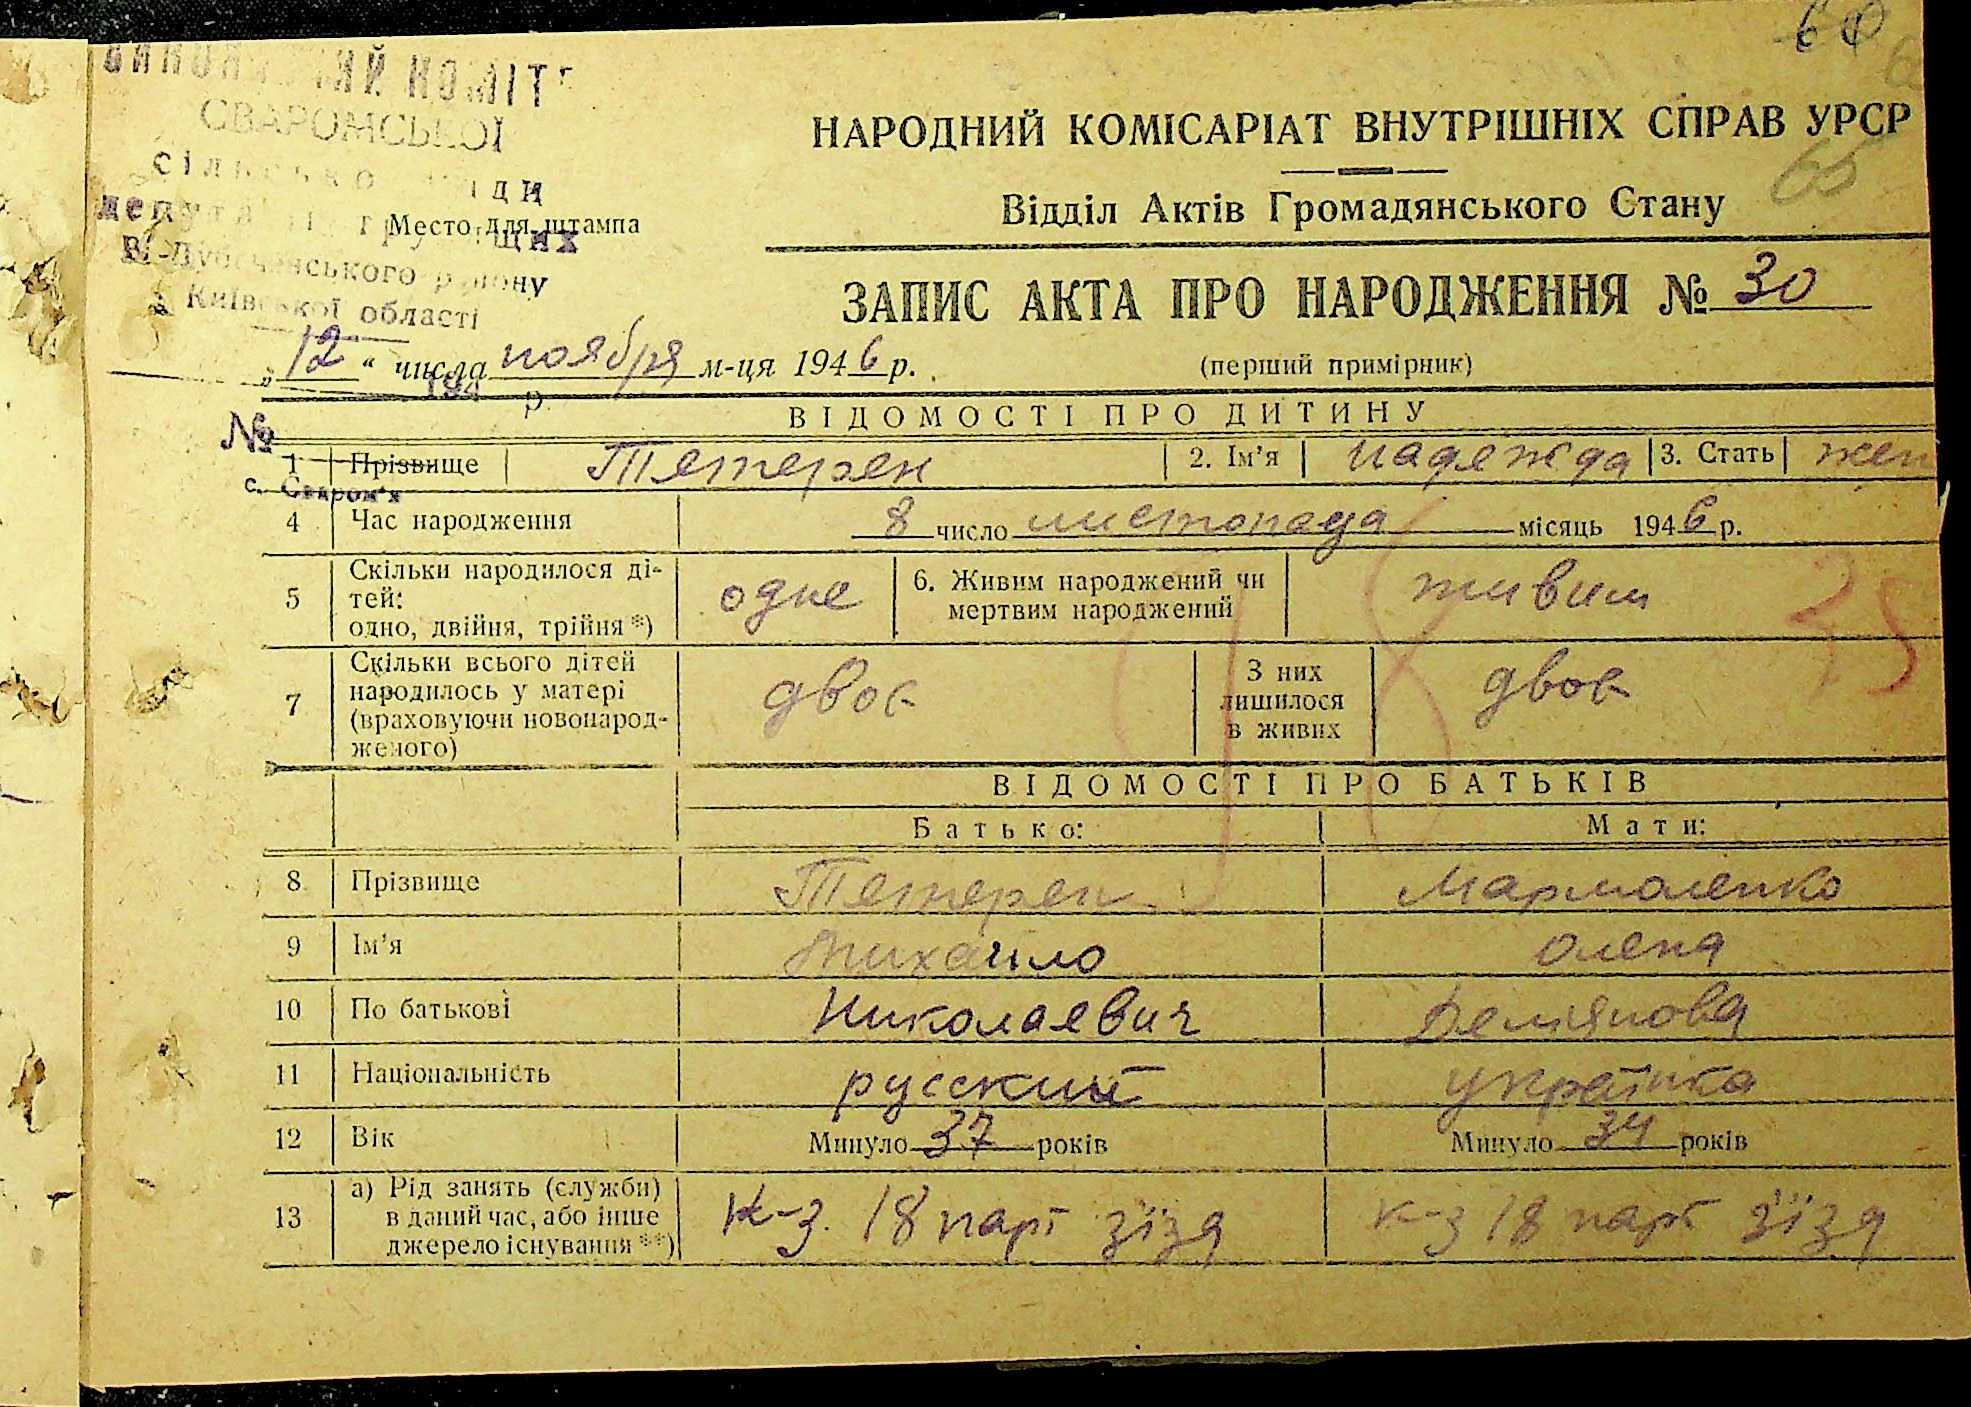 СВАРОМСЬКОЇ
Место для штампа
Київської області
НАРОДНИЙ КОМІСАРІАТ ВНУТРІШНІХ СПРАВ УРСР
65
Відділ Актів Громадянського Стану
ЗАПИС АКТА ПРО НАРОДЖЕННЯ № 30
„12“ числа ноября м-ця 1946 р.
(перший примірник)
194 р.
№
с. Сваром'я
ВІДОМОСТІ ПРО ДИТИНУ
1 Прізвище Тетерен 2. Ім’я Надежда 3. Стать жен
4 Час народження 8 число листопада місяць 1946 р.
5 Скільки народилося ді-
тей:
одно, двійня, трійня*) одне 6. Живим народжений чи
мертвим народжений живим
7 Скільки всього дітей
народилось у матері
(враховуючи новонарод-
женого) двоє З них
лишилося
в живих двоє
ВІДОМОСТІ ПРО БАТЬКІВ
Батько: Мати:
8 Прізвище Тетерен Мармоленко
9 Ім’я Михайло Олена
10 По батькові Николаевич Демянова
11 Національність русский українка
12 Вік Минуло 37 років Минуло 34 років
13 а) Рід занять (служби)
в даний час, або інше
джерело існування**) к-з. 18 парт зїзд к-з 18 парт зїзд